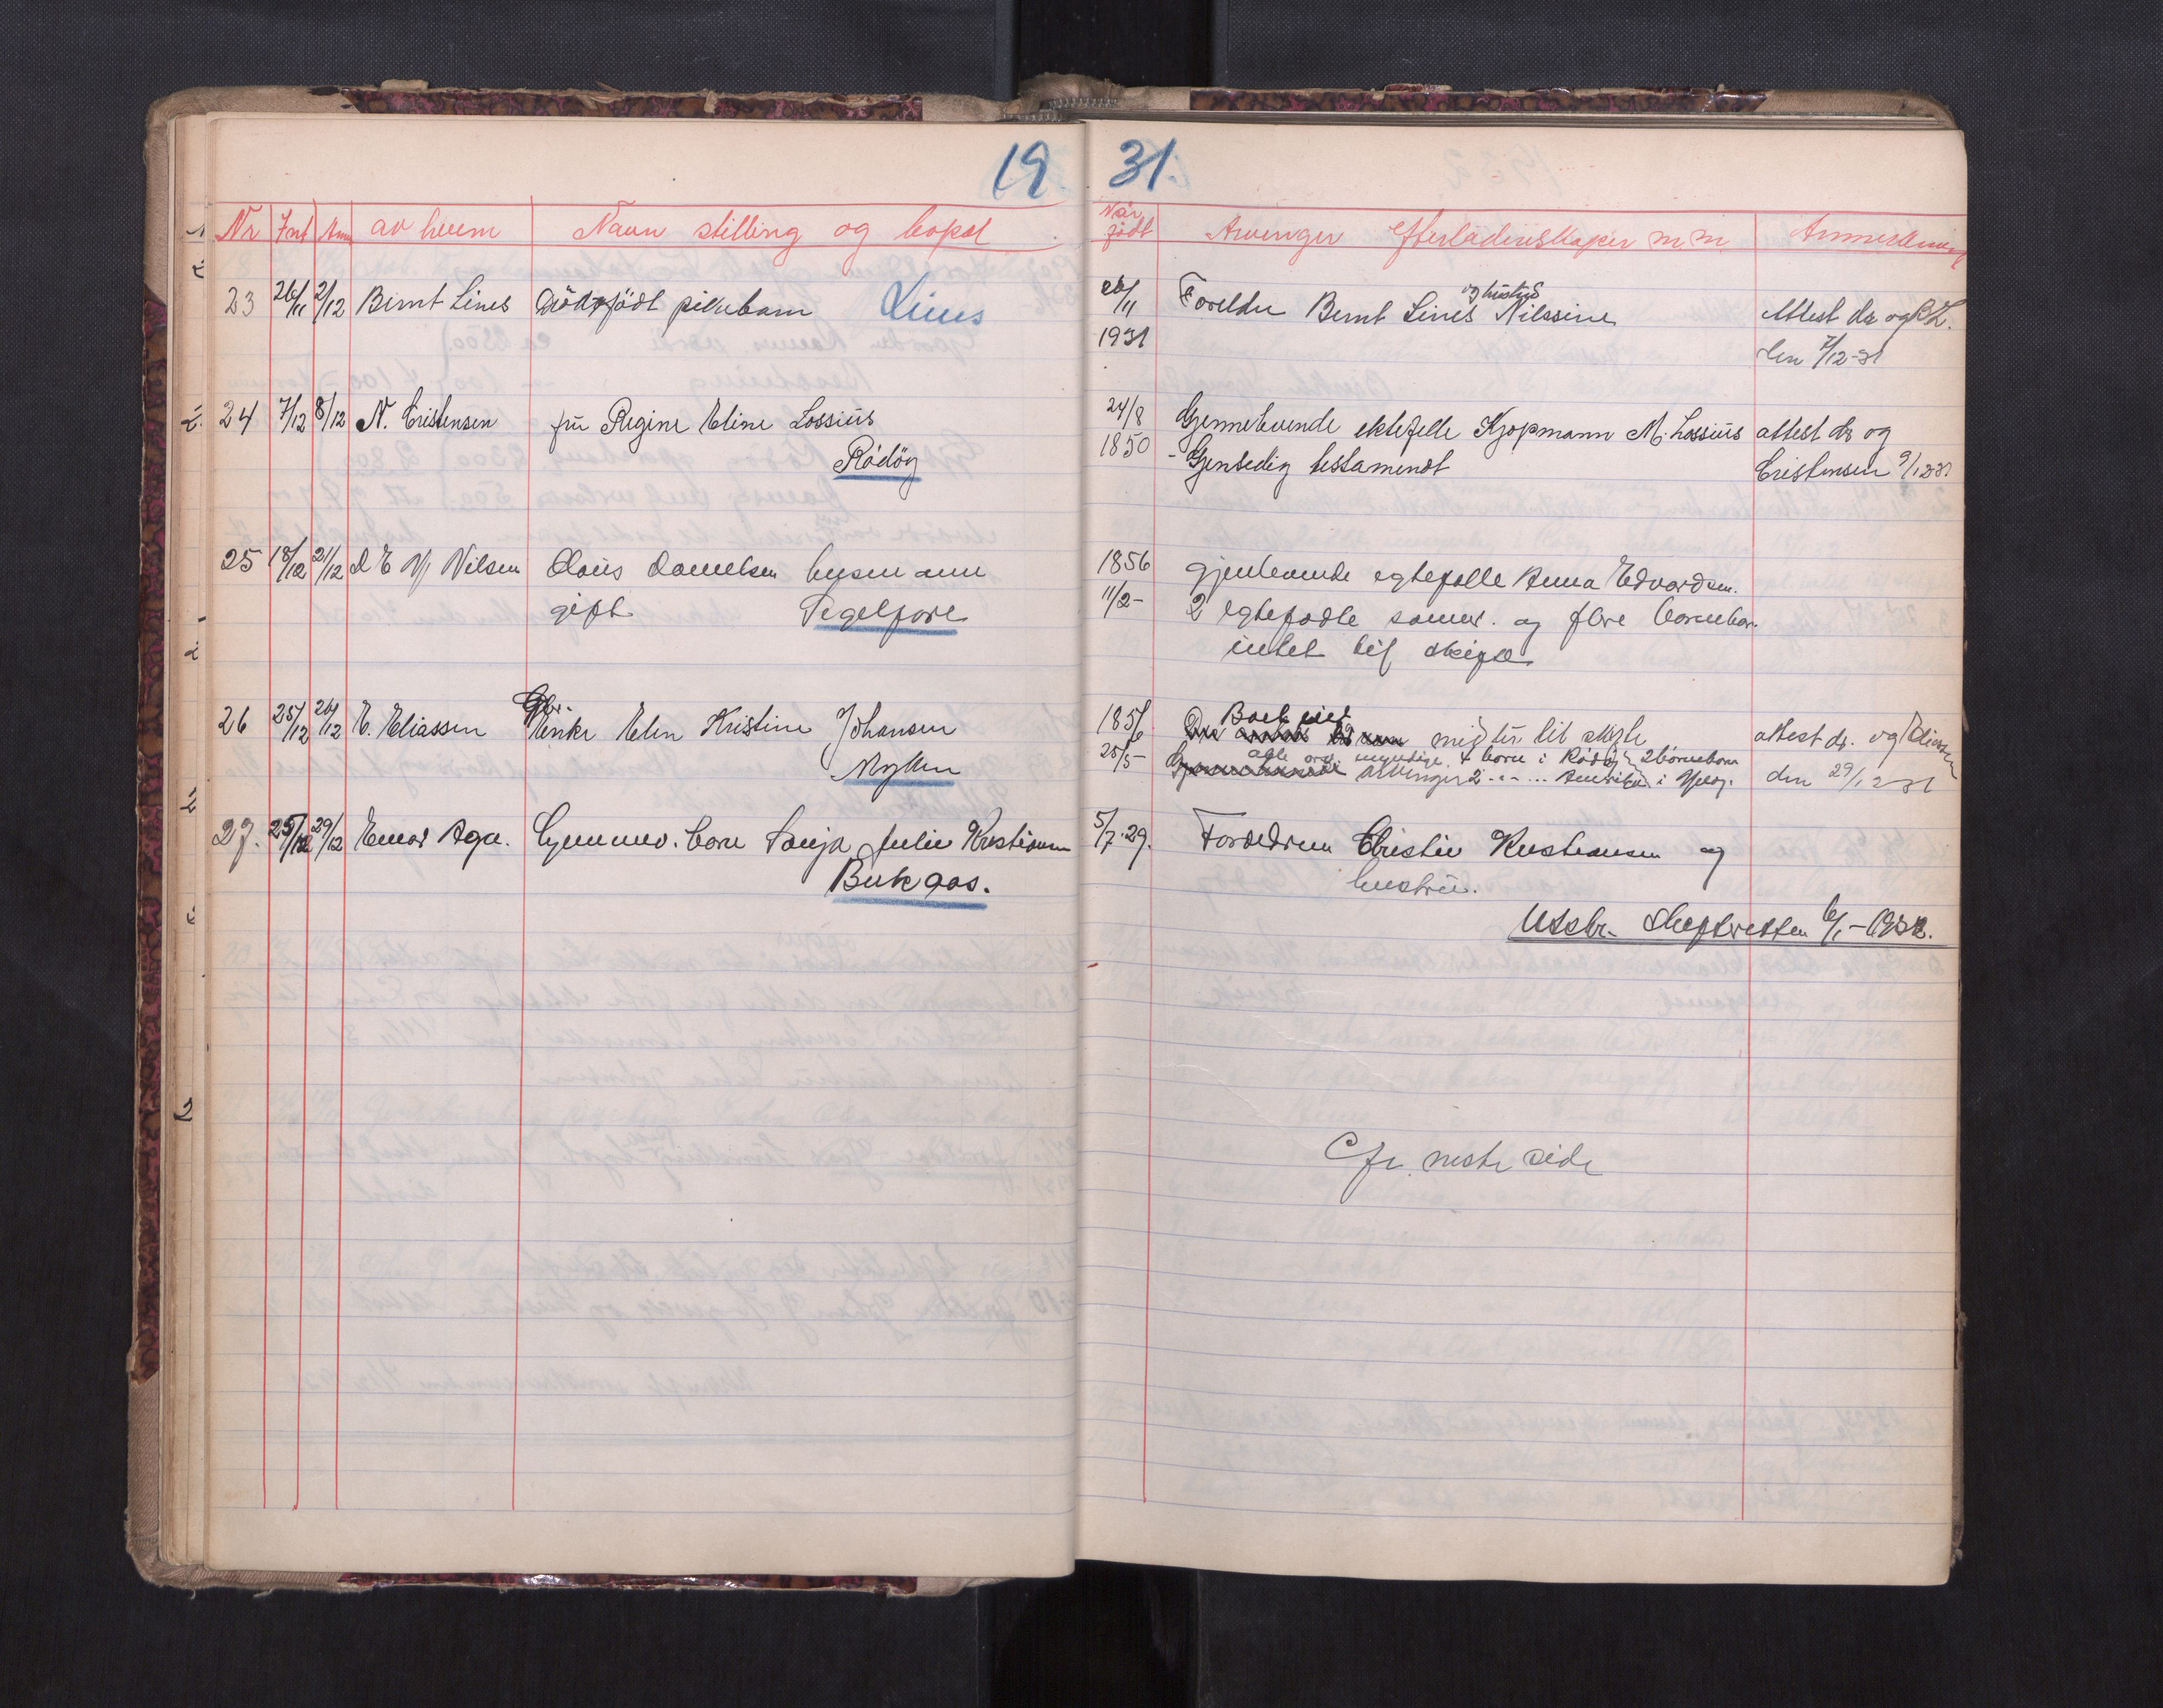 19 31.
Nr Inf Anm av hvem Navn stilling og bopæl
Når født Arvinger Efterladenskaper m.m. Anmerkning
23 26/11 2/12 Bernt Lines Dödfödt pikebarn Lines
26/11 Foreldre Bernt Lines og hustru Nilssine Attest dr og B.L.
1931 den 7/12-31
24 7/12 8/12 N. Cristensen fru Regine Eline Lossius
24/8 Gjennelevende ektefelle Kjøpmann M. Lossius attest dr og
Rödöy
1850 - Gjensedig testament Cristensen 9/12 31
25 18/12 21/12 N/ Nilsen Claus Danielsen husmann
1856 gjenlevende egtefelle Anna Edvardsen.
gift Segelfore
11/2- 2 egtefødte sønner. og flere barnebar.
intet til skifte
26 25/12 26/12 E. Eliassen Gbr. Enke Elen Kristine Johansen
1856 Boet midler til skifte attest dr. og Eliassen
Myken
25/5- alle myndige 4 barn i Rödöy 2 barnebarn
arvinger 2 - " - ... Amerika i den 29/12 31
27. 25/12 29/12 Einar Aga. Gjennev. barn Sonja Julie Kristiansen
5/7.29. Foreldrene Christian Kristiansen og
Bukaas.
hustru.
Utskr. Skifteretten 6/1-1932.
Cfr. neste side